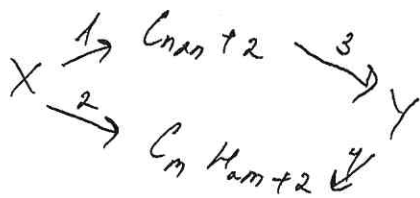 1 CnH2n+2 3
X
2 Y
CmH2m+2 4